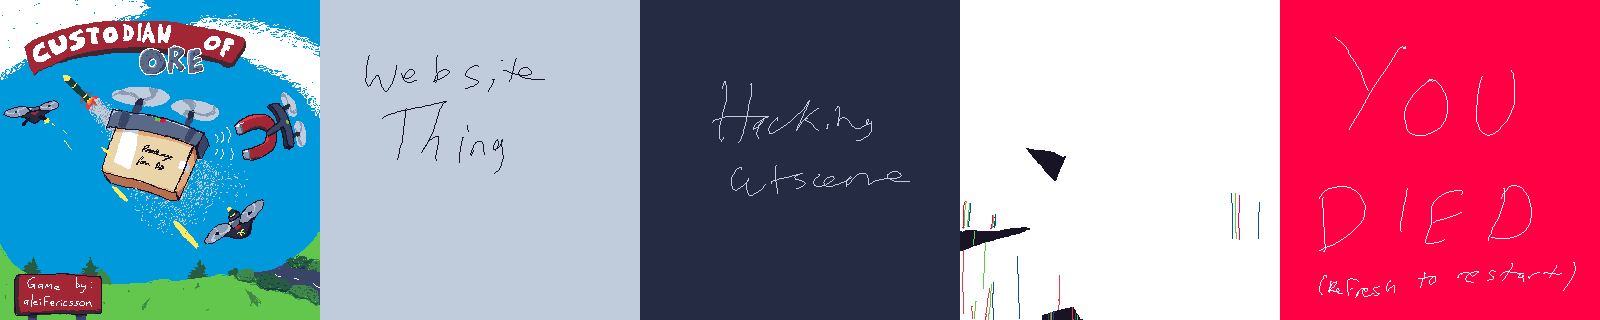 CUSTODIAN OF
ORE
Package
for: Bo
Game by:
aleiFericsson
Website
Thing
Hacking
cutscene
YOU
DIED
(Refresh to restart)